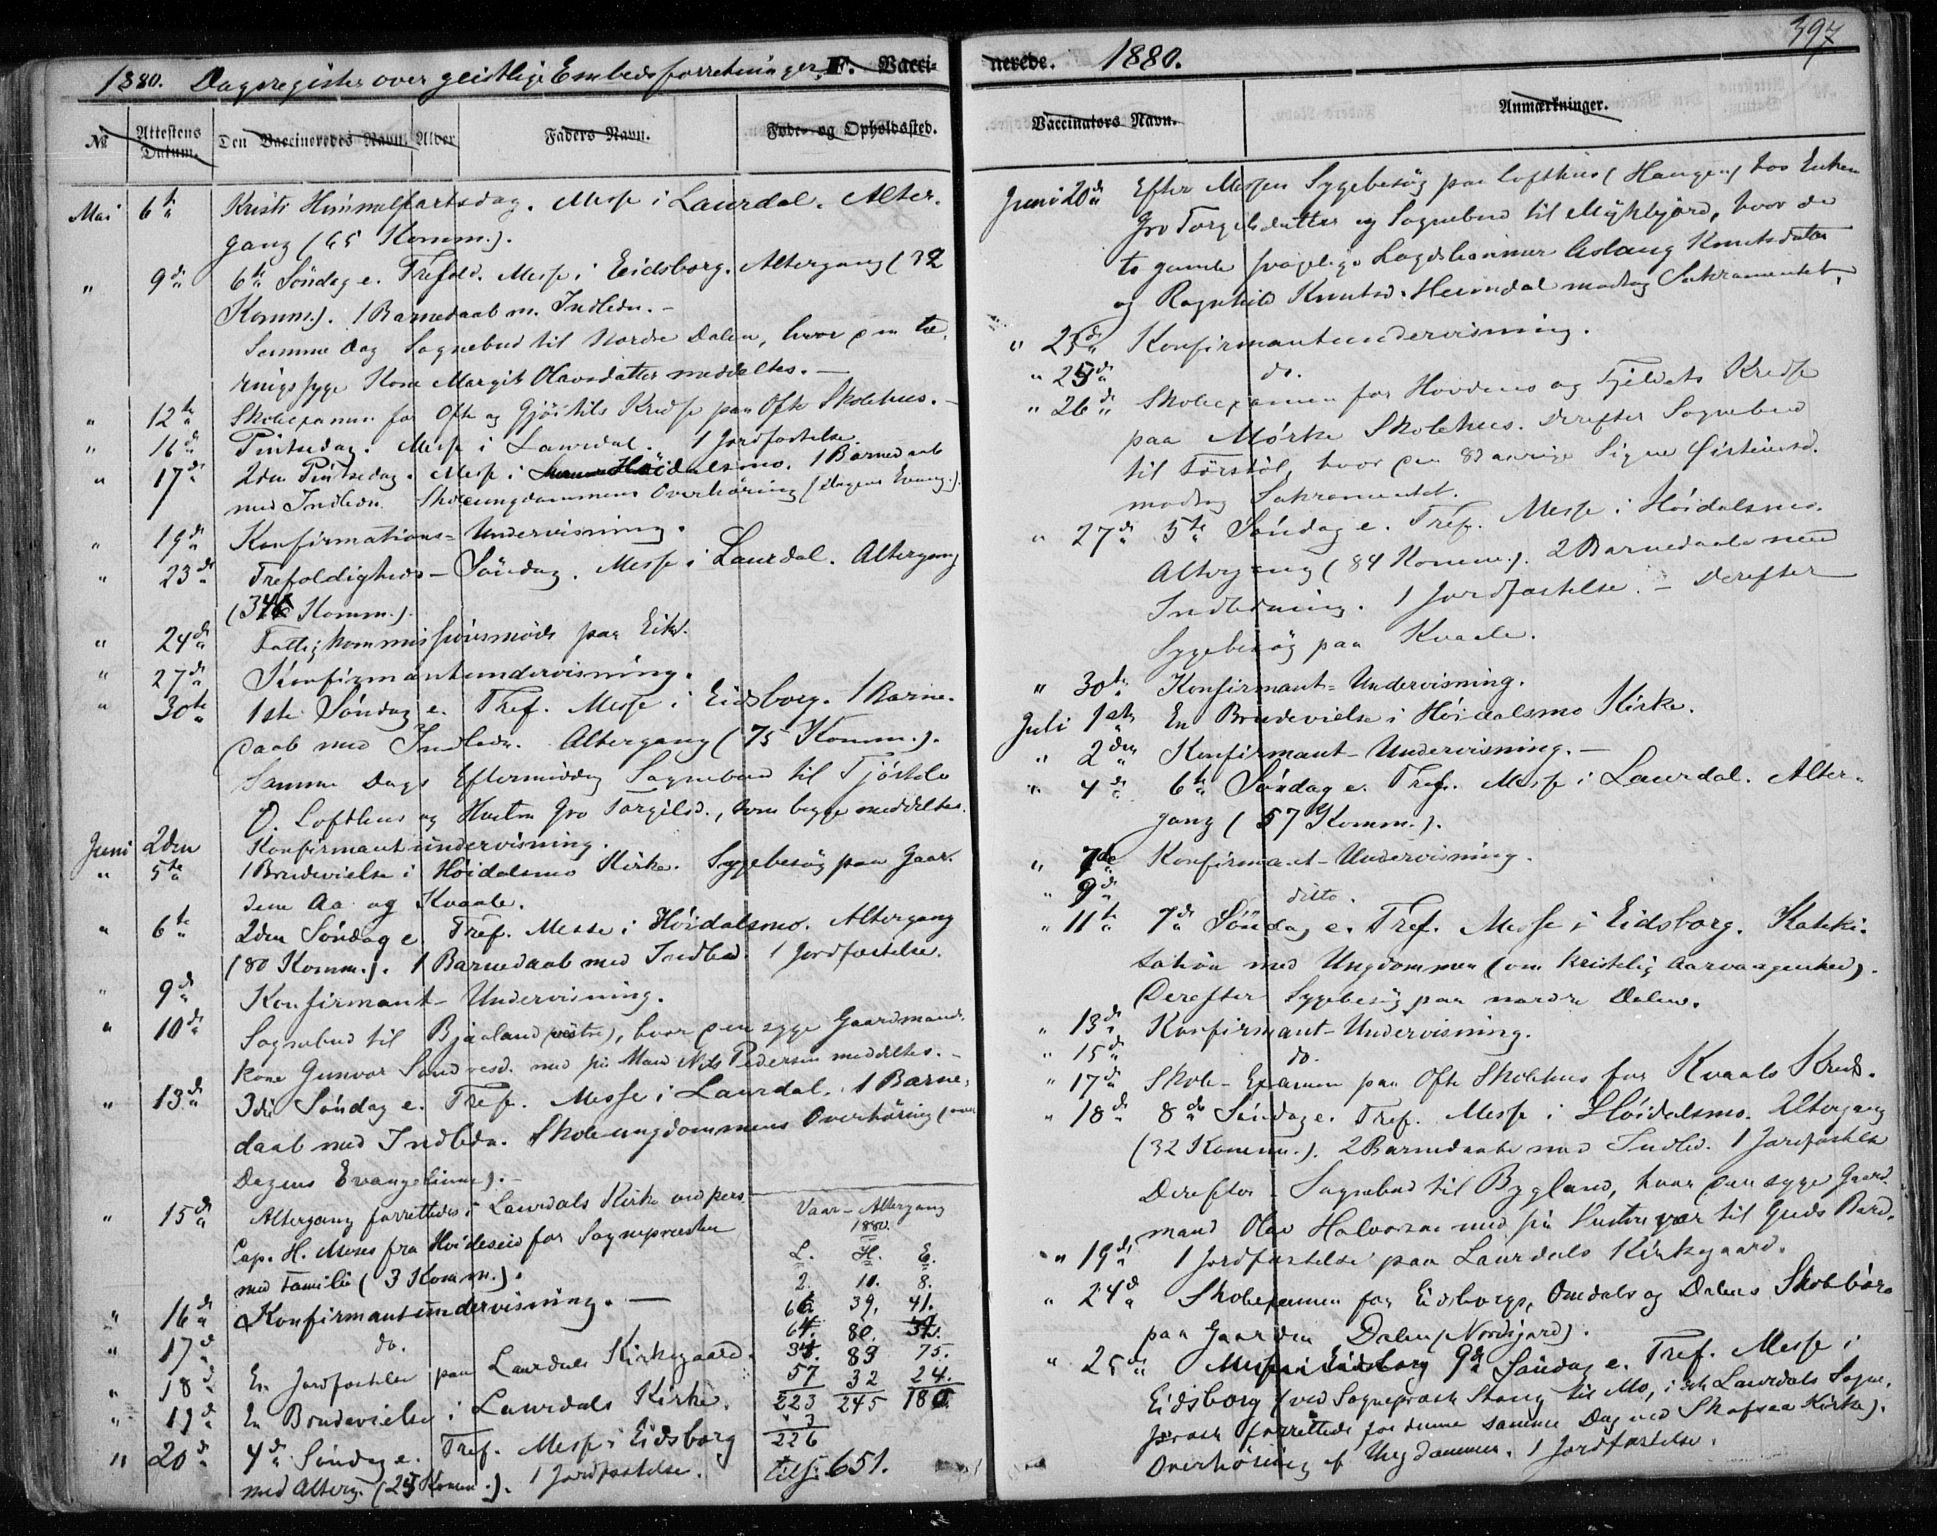 1880. Dagsregister over geistlige Embedsforretninger. F. Vacci-
No Attestens Datum. Den Vaccineredes Navn. Alder Faders Navn. Føde- og Opholdssted.
Mai 6te Kristi Himmelfartsdag. Messe i Laurdal. Alter-
gang (65 Komm.).
" 9de 6te Søndag e. Trefold. Messe i Eidsborg. Altergang (32
Komm.). 1 Barnedaab m. Indledn. -
Samme Dag Sognebud til Nordre Dalen, hvor den tæ-
ringssyge Kone Margit Olavsdatter meddeltes. -
" 12te Skoleexamen for Ofte og Gjøitils Kredse paa Ofte Skolehus. -
" 16de Pintsedag. Messe i Laurdal. 1 Jordfæstelse.
" 17de 2den Pintsedag. Messe i Høidalsmo. 1 Barnedaab
med Indledn. Skoleungdommens Overhøring (Dagens Evang.).
" 19de Konfirmations-Undervisning.
" 23de Trefoldigheds-Søndag. Messe i Laurdal. Altergang
(34 Komm.).
" 24de Fattigkommissionsmøde paa Eik.
" 27de Konfirmantundervisning.
" 30te 1ste Søndag e. Tref. Messe i Eidsborg. 1 Barne-
daab med Indledn. Altergang (75 Komm.).
Samme Dags Eftermiddag Sognebud til Tjøstolv
O. Lofthus og Hustru Gro Torgilsd., som begge meddeltes.
Juni 2den Konfirmantundervisning.
" 5te 1 Brudevielse i Høidalsmo Kirke. Sygebesøg paa Gaar-
dene Aa og Kvaale.
" 6te 2den Søndag e. Tref. Messe i Høidalsmo. Altergang
(80 Komm.). 1 Barnedaab med Indled. 1 Jordfæstelse.
" 9de Konfirmant-Undervisning.
" 10de Sognebud til Bjaaland (vestre), hvor den syge Gaardmands-
kone Gunvor Sandvesd. med sin Mand Nils Pedersen meddeltes. -
" 13de 3die Søndag e. Tref. Messe i Laurdal. 1 Barne-
daab med Indledn. Skoleungdommens Overhøring (over
Dagens Evangelium). -
" 15de Altergang forrettedes i Laurdals Kirke ved pers.
Cap. H. Moses fra Hvideseid for Sognepræsten
med Familie (3 Komm.).
" 16de Konfirmantundervisning. -
" 17de do.
" 18de En Jordfæstelse paa Laurdals Kirkegaard.
" 19de En Brudevielse i Laurdals Kirke.
" 20de 4de Søndag e. Tref. Messe i Eidsborg
med Alterg. (24 Komm.). 1 Jordfæstelse.
Vaar-Altergang
1880.
L. H. E.
2. 10. 8.
66. 39. 41.
64. 80. 32.
34. 89 75.
57 32 24.
223 245 180.
3
226
tils: 651.
nerede. 1880. 397
Vaccinators Navn. Anmærkninger.
Juni 20de Efter Messen Sygebesøg paa Lofthus (Haugen) hos Enken
Gro Torgilsdatter og Sognebud til Mykbjord, hvor de
to gamle svagelige Lægdslemmer Aslaug Knutsdatter
og Ragnhild Knutsd. Heimdal modtog Sakramentet.
" 23de Konfirmantundervisning.
" 25de do.
" 26de Skoleexamen for Hovdens og Fjeldets Kredse
paa Mørke Skolehus. Derefter Sognebud
til Førstøl, hvor den 83aarige Signe Øisteinsd.
modtog Sakramentet.
" 27de 5te Søndag e. Tref. Messe i Høidalsmo.
Altergang (84 Komm.). 2 Barnedaabe med
Indledning. 1 Jordfæstelse. - Derefter
Sygebesøg paa Kvaale.
" 30te Konfirmant-Undervisning.
Juli 1ste En Brudevielse i Høidalsmo Kirke.
" 2den Konfirmant-Undervisning. -
" 4de 6te Søndag e. Tref. Messe i Laurdal. Alter-
gang (57 Komm.).
" 7de Konfirmant-Undervisning.
" 9de ditto.
" 11te 7de Søndag e. Tref. Messe i Eidsborg. Kateki-
sation med Ungdommen (om kristelig Aarvaagenhed).
Derefter Sygebesøg paa nordre Dalen.
" 13de Konfirmant-Undervisning.
" 15de do.
" 17de Skole-Examen paa Ofte Skolehus for Kvaals Kreds.
" 18de 8de Søndag e. Tref. Messe i Høidalsmo. Altergang
(32 Komm.). 2 Barnedaabe med Indled. 1 Jordfæstelse
Derefter Sognebud til Bygland, hvor den syge Gaard-
mand Olav Halvorsen med sin Hustru var til Guds Bord.
" 19de 1 Jordfæstelse paa Laurdals Kirkegaard.
" 24de Skoleexamen for Eidsborgs, Omdals og Dalens Skolebørn
paa Gaarden Dalen (Nordigard).
" 25de Messe i Eidsborg 9de Søndag e. Tref. Messe i
Eidsborg (ved Sognepræst Stang til Mo, idet Laurdals Sogne-
præst forrettede for denne samme Dag ved Skafsaa Kirke).
Overhøring af Ungdommen. 1 Jordfæstelse.